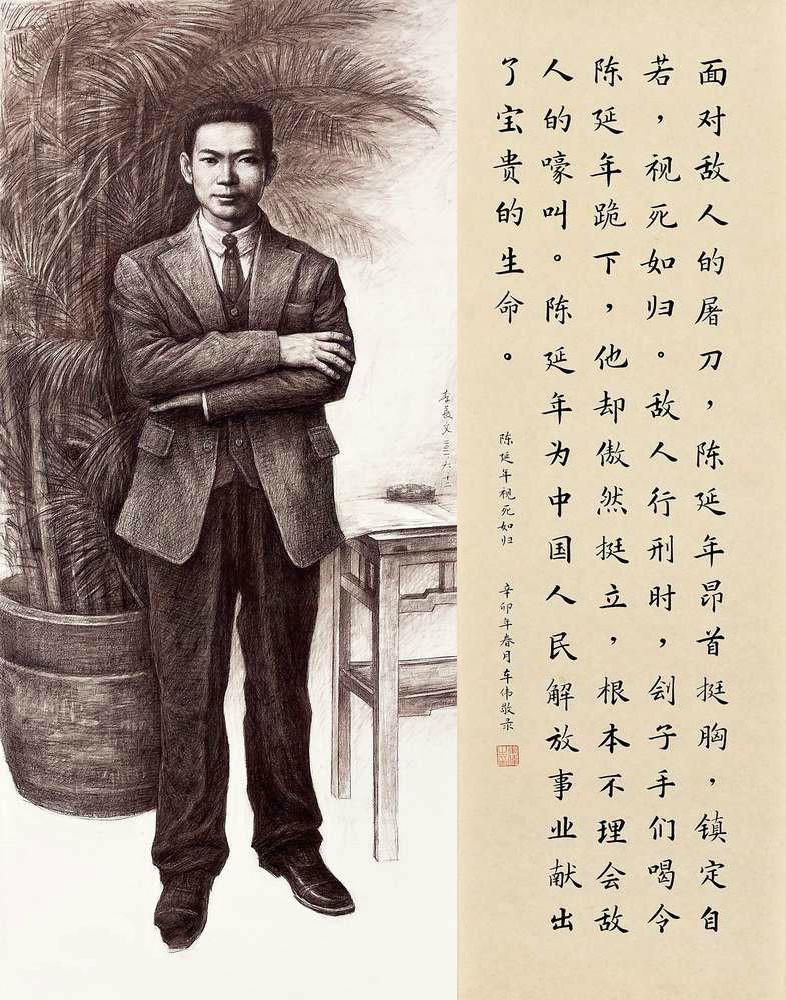 面对敌人的屠刀，陈延年昂首挺胸，镇定自
若，视死如归。敌人行刑时，刽子手们喝令
陈延年跪下，他却傲然挺立，根本不理会敌
人的嚎叫。陈延年为中国人民解放事业献出
了宝贵的生命。
陈延年视死如归 辛卯年春月车伟敬录